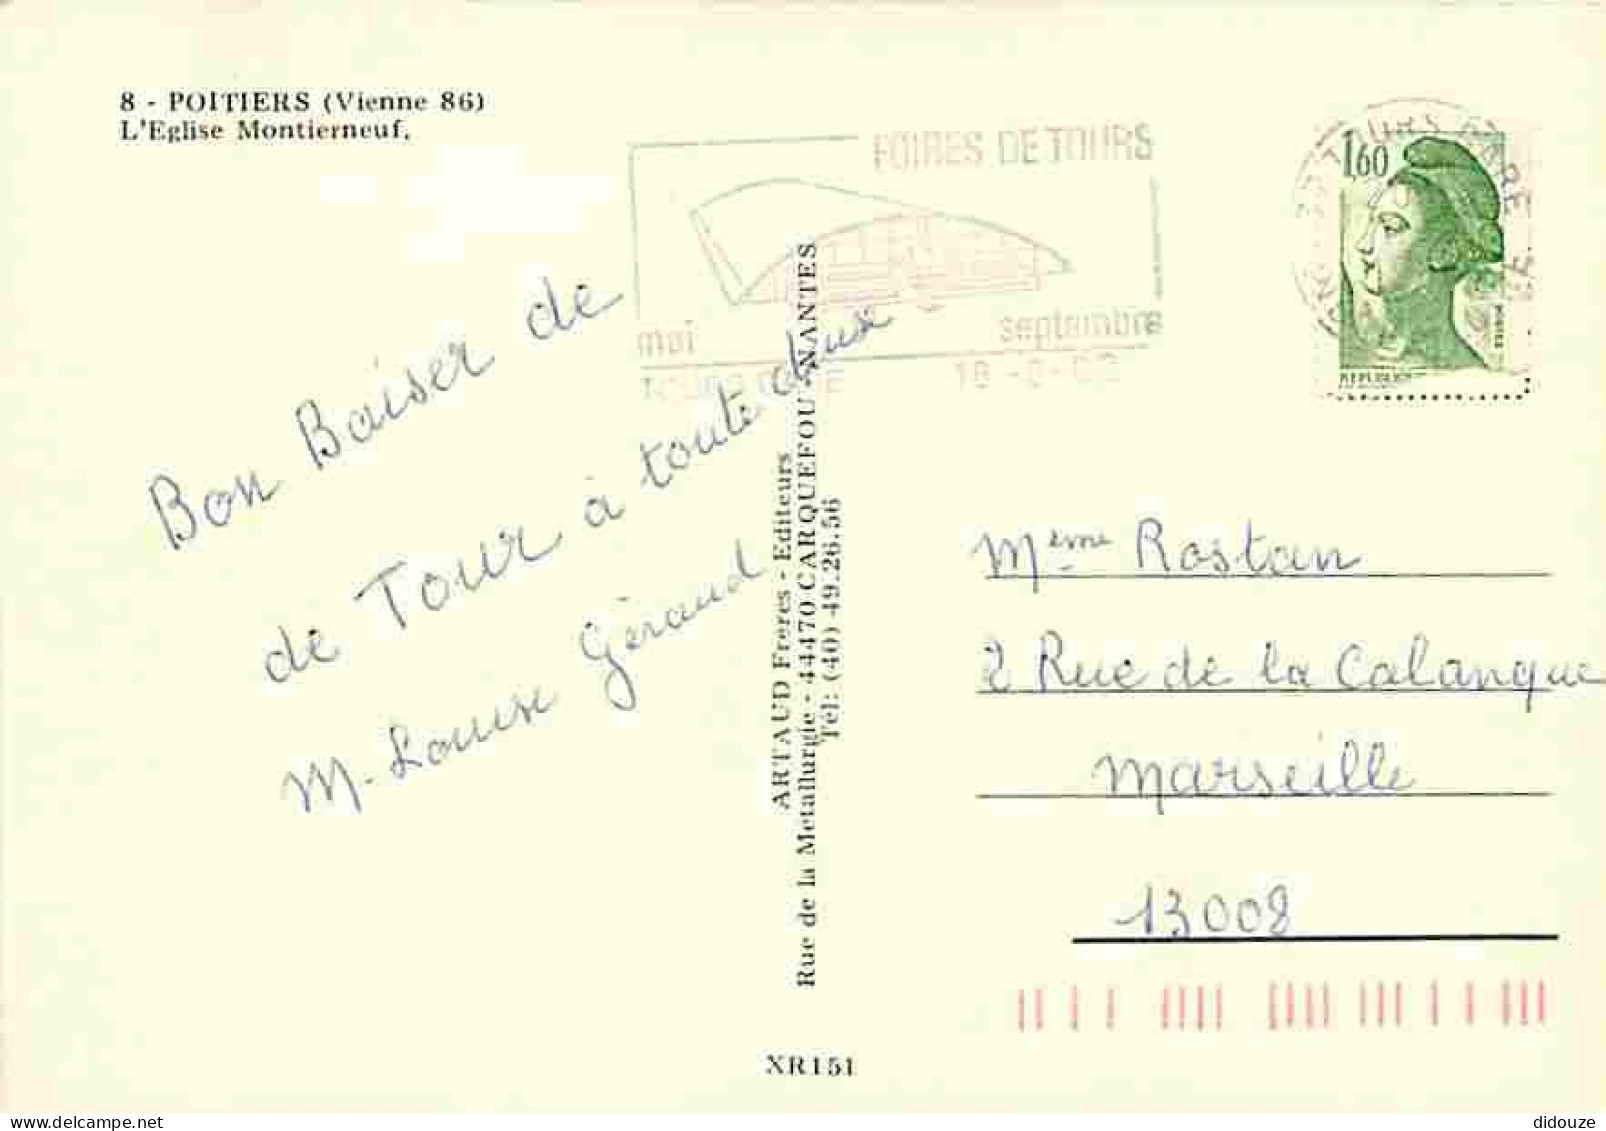 8 - POITIERS (Vienne 86)
L'Eglise Montierneuf.
FOIRES DE TOURS
mai
septembre
1,60
POSTES
Bon Baiser de
de Tour à toute deux
M. Louise Géraud
ARTAUD Frères - Editeurs
Rue de la Métallurgie - 44470 CARQUEFOU - NANTES
Tél: (40) 49.26.56
Mème Rostan
2 Rue de la Calanque
Marseille
13008
XR151
delcampe.net
didouze